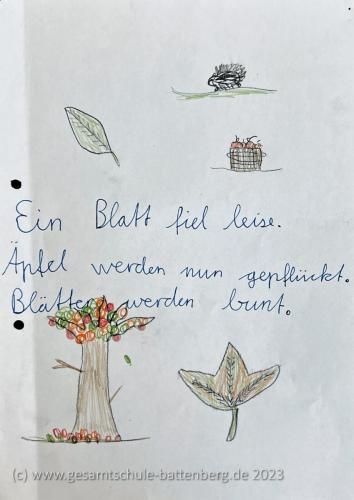 Ein Blatt fiel leise.
Äpfel werden nun gepflückt.
Blätter werden bunt.
(c) www.gesamtschule-battenberg.de 2023